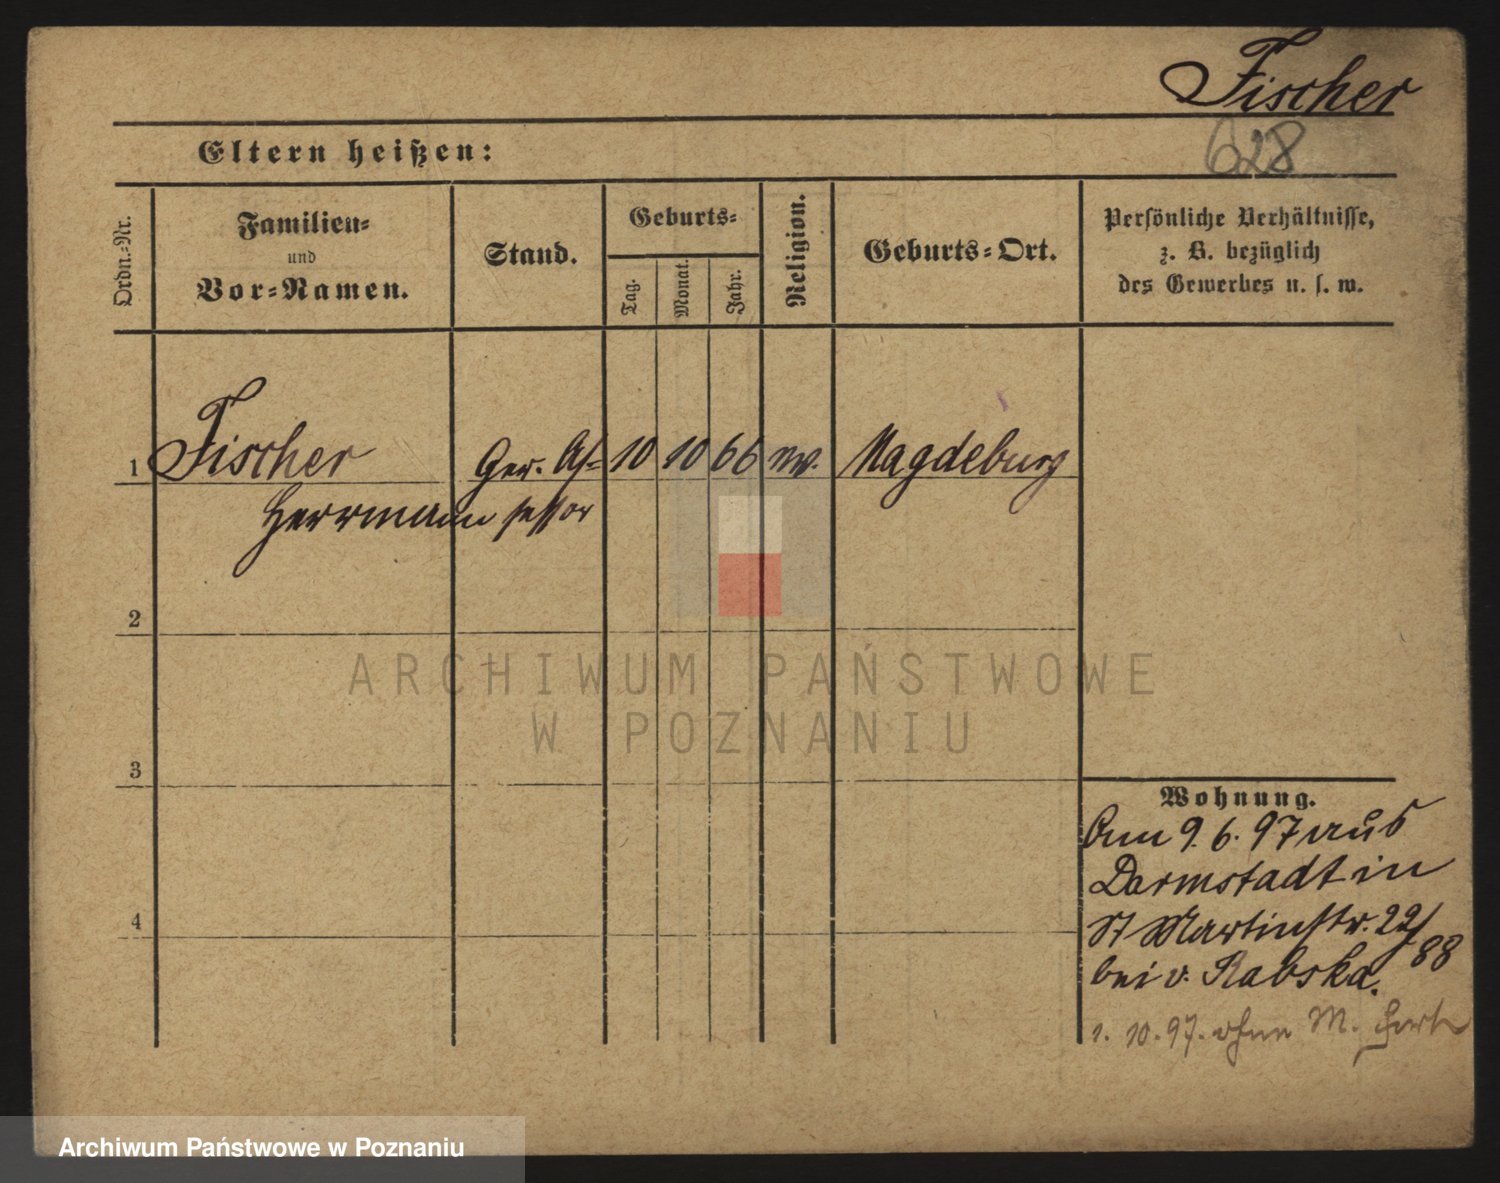 Fischer
628
Eltern heißen:
Ordn.-Nr.
Familien-
und
Vor-Namen.
Stand.
Geburts-
Tag.
Monat.
Jahr.
Religion.
Geburts-Ort.
Persönliche Verhältnisse,
z. B. bezüglich
des Gewerbes u. s. w.
1 Fischer Ger. As- 10 10 66 ev. Magdeburg
Herrmann sessor
2
3
4
ARCHIWUM PAŃSTWOWE
W POZNANIU
Wohnung.
Am 9. 6. 97 aus
Darmstadt in
St Martinstr. 22/
88
bei v. Rabska.
1. 10. 97. ohne M. fort
Archiwum Państwowe w Poznaniu